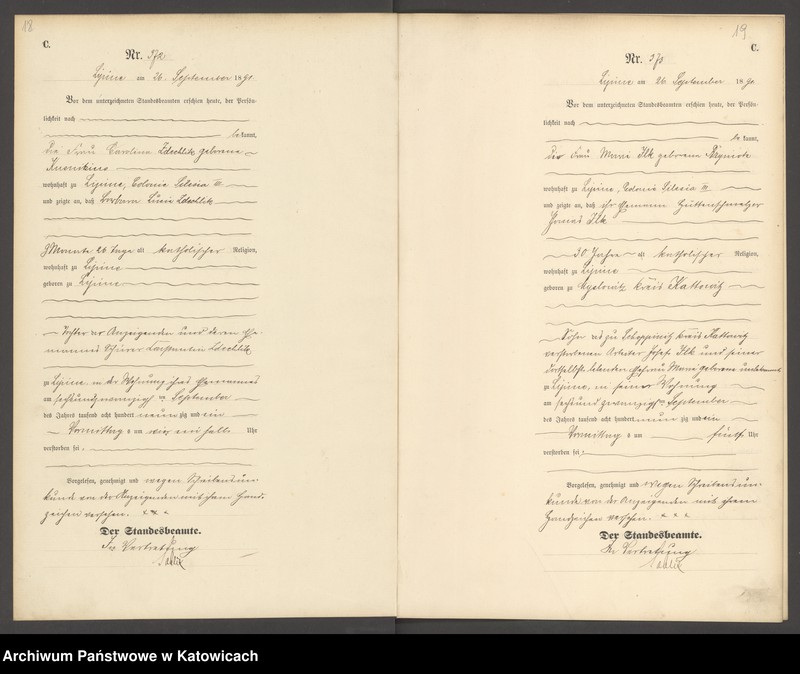 18
C.
Nr. 372
Lipine am 26. September 1890
Vor dem unterzeichneten Standesbeamten erschien heute, der Persön-
lichkeit nach
bekannt,
die Frau Carolina Zdechlik geborene
wohnhaft zu Lipine, Colonie Silesia
und zeigte an, daß Barbara Zdechlik
Monate 26 Tage alt katholischer Religion,
wohnhaft zu Lipine
geboren zu Lipine
Tochter der Anzeigenden und deren Ehe-
mannes Constantin Zdechlik
zu Lipine, in der Wohnung ihres Ehemannes
am sechsundzwanzigsten September
des Jahres tausend acht hundert neunzig und
Vormittag um vier ein halb Uhr
verstorben sei;
Vorgelesen, genehmigt und wegen Schreibensun-
kunde von der Anzeigenden mit ihrem Hand-
zeichen versehen. x x x
Der Standesbeamte.
In Vertretung
19
C.
Nr. 373
Lipine am 26. September 1890
Vor dem unterzeichneten Standesbeamten erschien heute, der Persön-
lichkeit nach
bekannt,
die Frau Marie Ilk geborene
wohnhaft zu Lipine, Colonie Silesia
und zeigte an, daß ihr Ehemann Hüttenschmelzer
Ilk
30 Jahre alt katholischer Religion,
wohnhaft zu Lipine
geboren zu Myslowitz Kreis Kattowitz
Sohn des zu Schoppinitz Kreis Kattowitz
verstorbenen Arbeiter Josef Ilk und seiner
daselbst lebenden Ehefrau Marie geborene unbekannt
zu Lipine, in seiner Wohnung
am sechsundzwanzigsten September
des Jahres tausend acht hundert neunzig und
Vormittag um fünf Uhr
verstorben sei;
Vorgelesen, genehmigt und wegen Schreibensun-
kunde von der Anzeigenden mit ihrem
Handzeichen versehen. x x x
Der Standesbeamte.
In Vertretung
Archiwum Państwowe w Katowicach